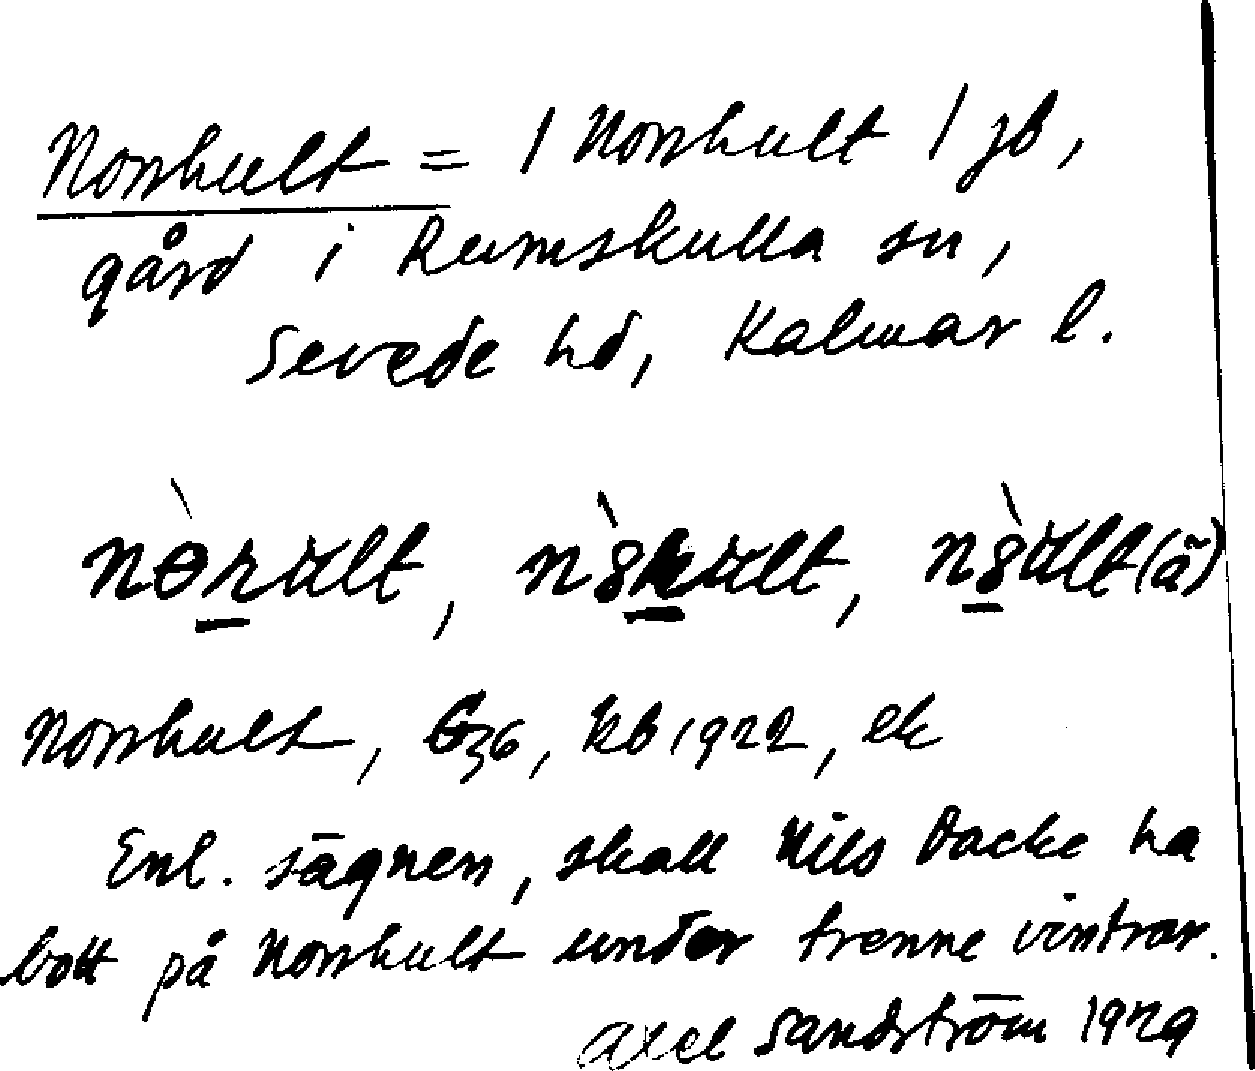 Norrhult = / Norrhult / jb,
gård i Rumskulla sn,
Sevede hd, Kalmar l.
Norrhult, G36, kb 1922, ek
Enl. sägnen, skall Nils Dacke ha
bott på Norrhult under trenne vintrar.
Axel Sandström 1929